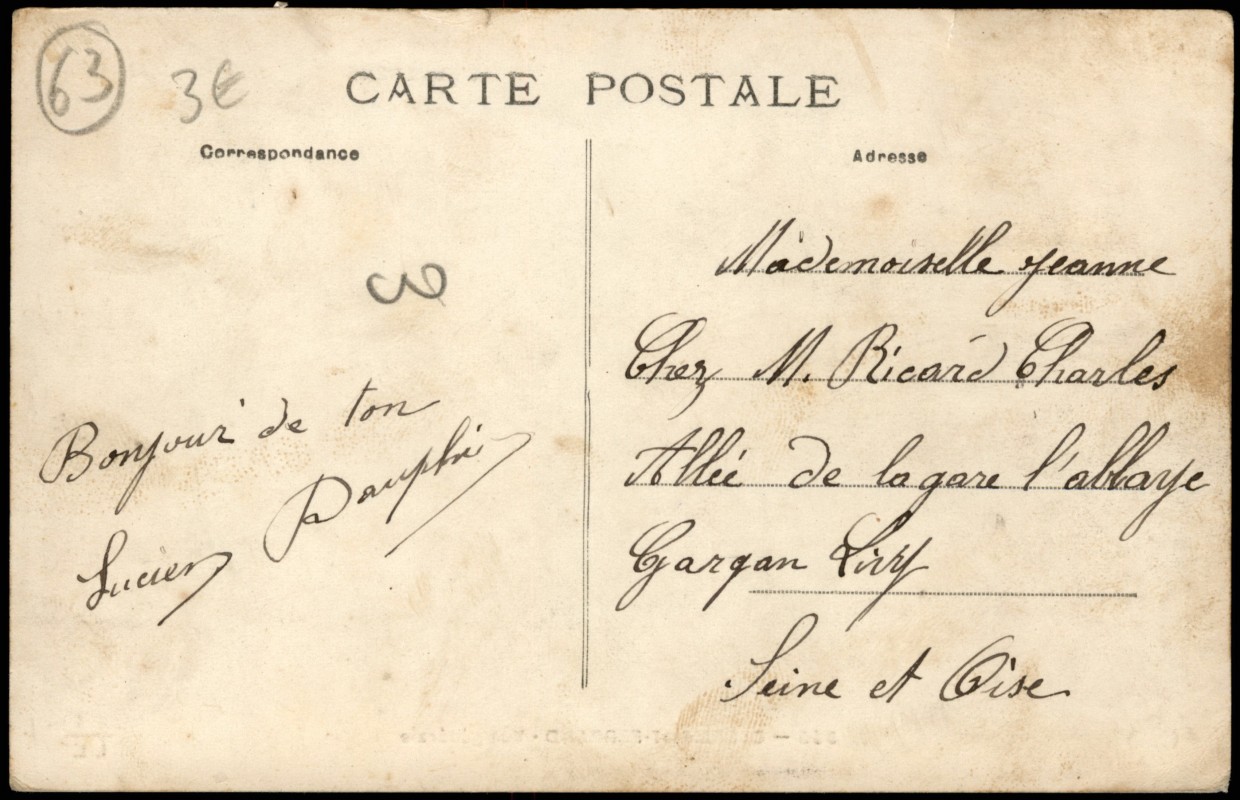 63
3€
CARTE POSTALE
Correspondance
Adresse
3
Bonjour de ton
Dauphin
Lucien
Mademoiselle Jeanne
Chez M. Ricard Charles
Allée de la gare l'abbaye
Gargan Livry
Seine et Oise